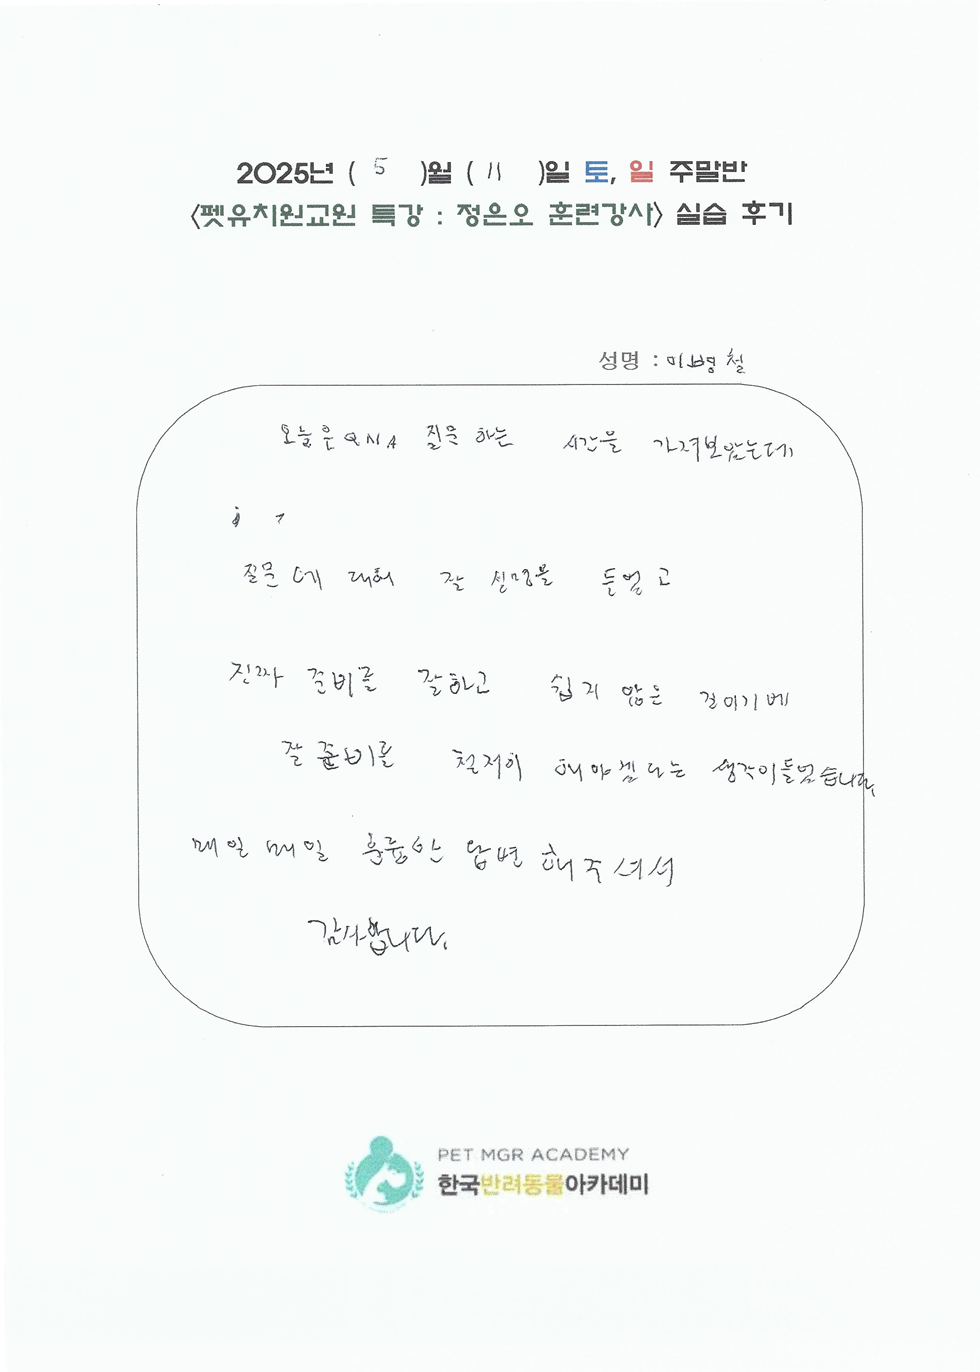 2025년 ( 5 )월 ( 11 )일 토, 일 주말반
<펫유치원교원 특강 : 정은오 훈련강사> 실습 후기
성명 : 이병철
오늘은 QNA 질문 하는 시간을 가져보았는데
질문에 대해 잘 설명을 들었고
진짜 준비를 잘하고 쉽지 않은 길이기에
잘 준비를 철저히 해야겠다는 생각이들었습니다.
매일 매일 훌륭한 답변 해주셔서
감사합니다.
PET MGR ACADEMY
한국반려동물아카데미